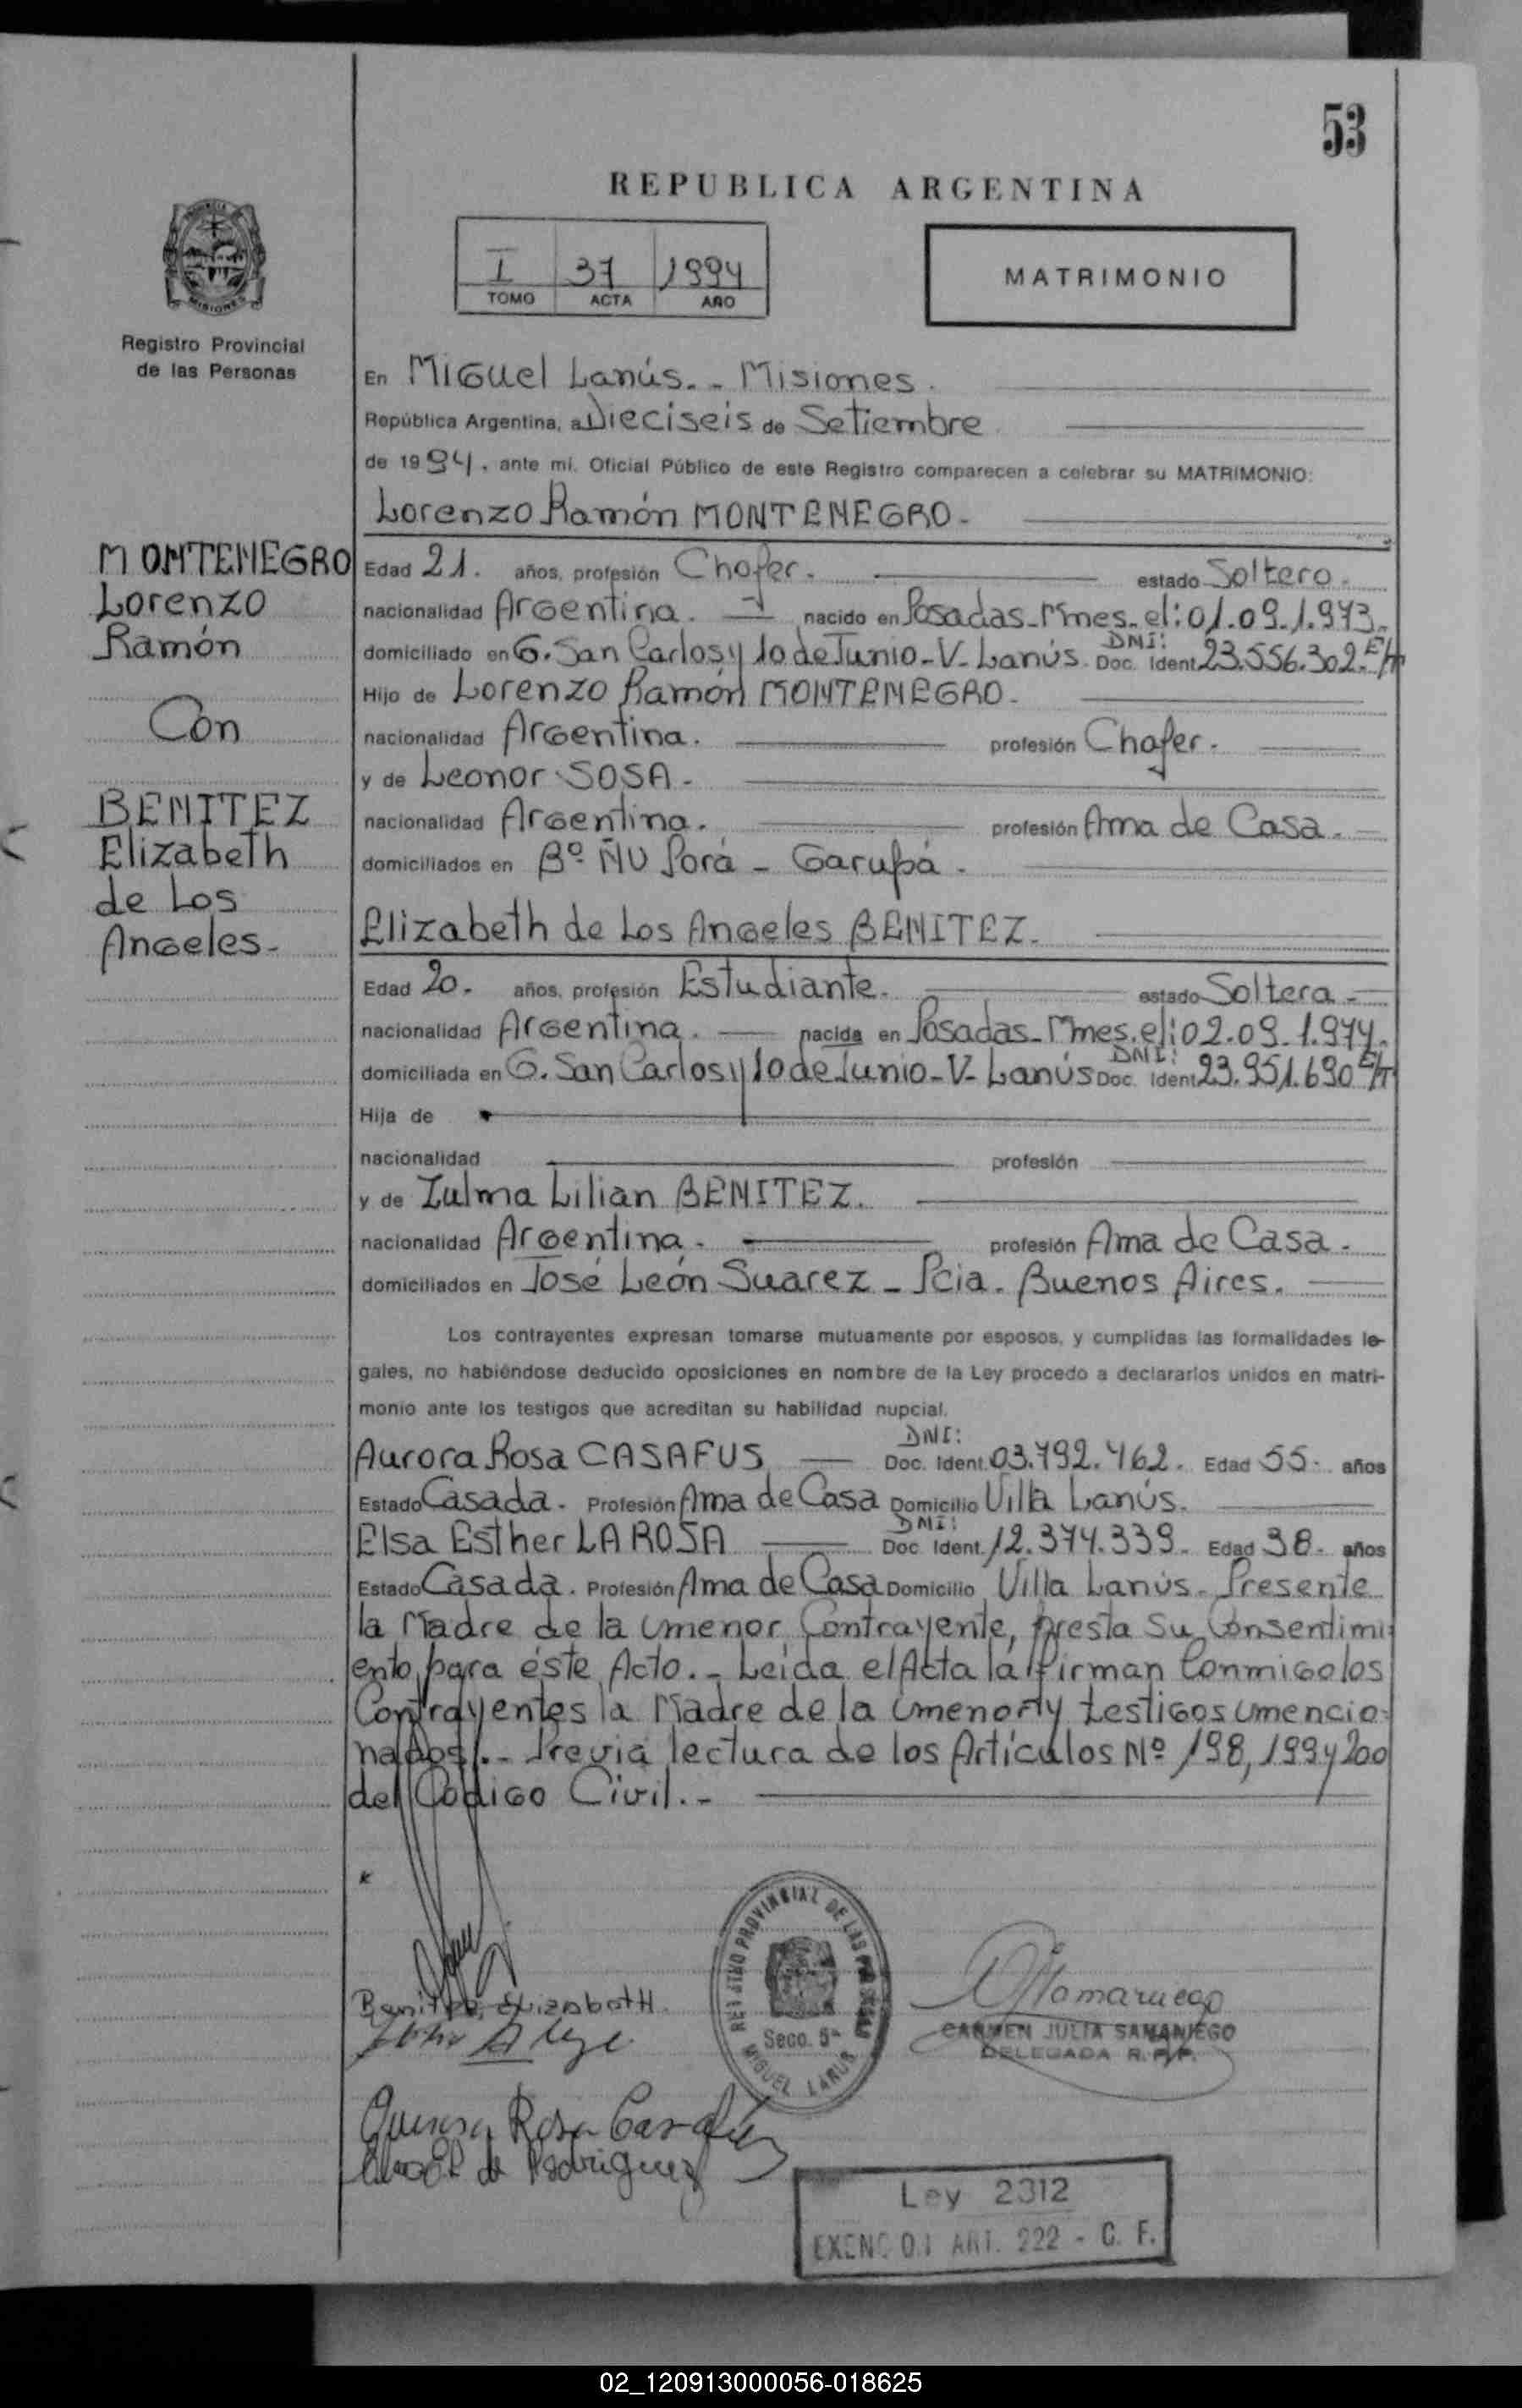 53
REPUBLICA ARGENTINA
I 37 1994
TOMO ACTA AÑO
MATRIMONIO
MISIONES
Registro Provincial
de las Personas
En Miguel Lanús.- Misiones.
República Argentina, a Dieciseis de Setiembre
de 1994, ante mí. Oficial Público de este Registro comparecen a celebrar su MATRIMONIO:
Lorenzo Ramón MONTENEGRO-
MONTENEGRO
Lorenzo
Ramón
Con
BENITEZ
Elizabeth
de Los
Angeles-
Edad 21. años, profesión Chofer. estado Soltero.
nacionalidad Argentina. nacido en Posadas-Mnes-el:01.09.1.973-
domiciliado en G. San Carlos y 10 de Junio-V-Lanús. DNI: Doc. Ident. 23.556.302-
Hijo de Lorenzo Ramón MONTENEGRO-
nacionalidad Argentina. profesión Chofer.
y de Leonor SOSA-
nacionalidad Argentina. profesión Ama de Casa.
domiciliados en Bº ÑU Porá - Garupá-
Elizabeth de Los Angeles BENITEZ-
Edad 20. años, profesión Estudiante. estado Soltera-
nacionalidad Argentina. nacida en Posadas-Mnes.el:02.09.1.974-
domiciliada en G. San Carlos y 10 de Junio-V-Lanús DNI: Doc. Ident. 23.951.690
Hija de
nacionalidad profesión
y de Zulma Lilian BENITEZ.
nacionalidad Argentina. profesión Ama de Casa.
domiciliados en José León Suarez - Pcia. Buenos Aires.
Los contrayentes expresan tomarse mutuamente por esposos, y cumplidas las formalidades le-
gales, no habiéndose deducido oposiciones en nombre de la Ley procedo a declararlos unidos en matri-
monio ante los testigos que acreditan su habilidad nupcial.
Aurora Rosa CASAFUS DNI: Doc. Ident. 03.792.462. Edad 55. años
Estado Casada. Profesión Ama de Casa Domicilio Villa Lanús.
Elsa Esther LA ROSA DNI: Doc. Ident. 12.374.339. Edad 38. años
Estado Casada. Profesión Ama de Casa Domicilio Villa Lanús. Presente
la Madre de la menor Contrayente, presta Su Consentimi
ento para éste Acto.- Leída el Acta la firman Conmigo los
Contrayentes la Madre de la menor y testigos mencio-
nados.- Previa lectura de los Artículos Nº 198, 199 y 200
del Código Civil.-
Benitez, Elizabeth
REGISTRO PROVINCIAL DE LAS PERSONAS
Secc. 5ª
MIGUEL LANUS
CARMEN JULIA SAMANIEGO
DELEGADA R.P.P.
Aurora Rosa Casafús
de Rodriguez
Ley 2312
EXENC ON ART. 222 - C. F.
02_120913000056-018625